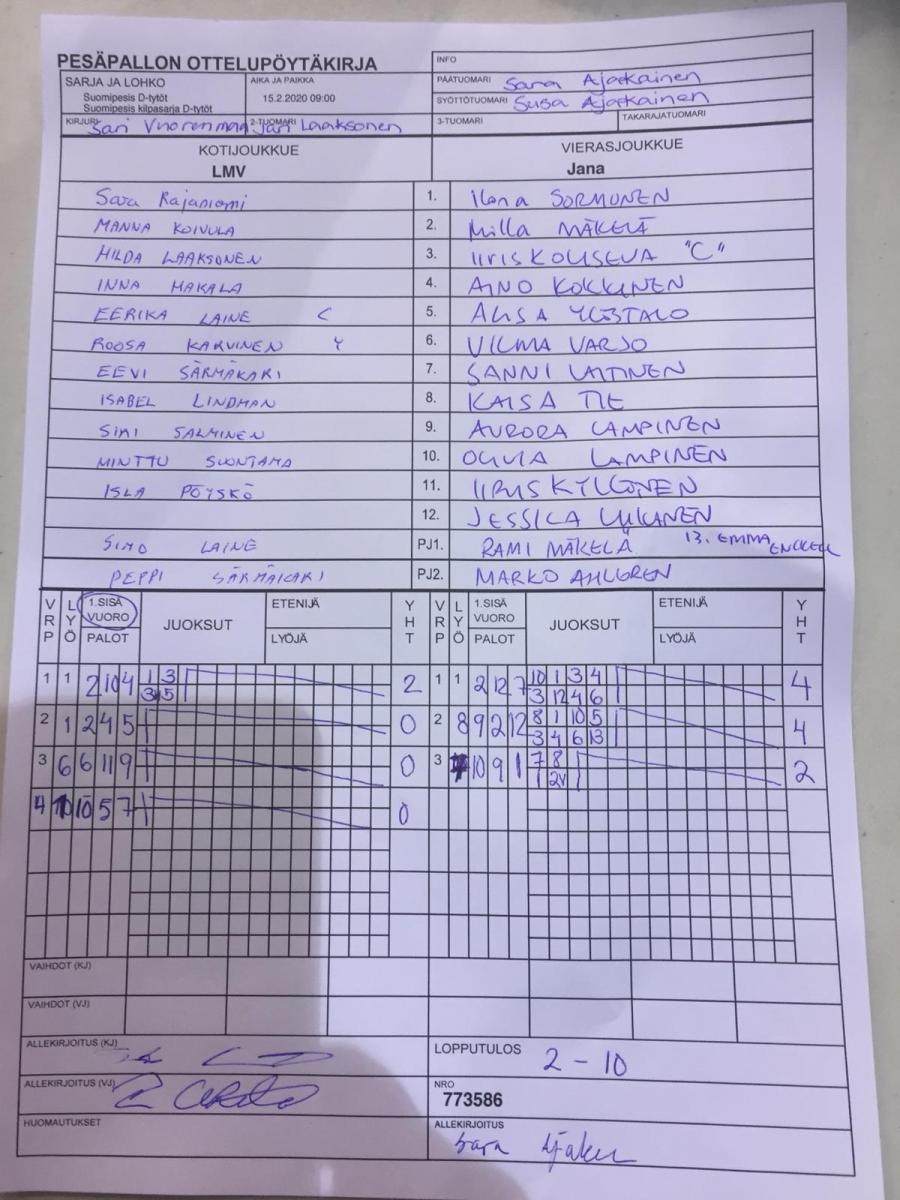 PESÄPALLON OTTELUPÖYTÄKIRJA
INFO
SARJA JA LOHKO
AIKA JA PAIKKA
PÄÄTUOMARI Sara Ajatkainen
Suomipesis D-tytöt
Suomipesis kilpasarja D-tytöt
15.2.2020 09:00
SYÖTTÖTUOMARI Susa Ajatkainen
KIRJURI Sari Vuorenmaa 2-TUOMARI Jari Laaksonen
3-TUOMARI TAKARAJATUOMARI
KOTIJOUKKUE VIERASJOUKKUE
LMV Jana
Sara Rajaniemi 1. Ilona SORMUNEN
MANNA KOIVULA 2. Milla MÄKELÄ
HILDA LAAKSONEN 3. IIRIS KOLISEVA "C"
INNA MAKALA 4. AINO KOKKINEN
EERIKA LAINE C 5. ALISA YLÖSTALO
ROOSA KARVINEN Y 6. VILMA VARJO
EEVI SÄRMÄKARI 7. SANNI LAITINEN
ISABEL LINDMAN 8. KAISA TIE
SINI SALMINEN 9. AURORA LAMPINEN
MINTTU SUONTAMA 10. OLIVIA LAMPINEN
ISLA PÖYSKÖ 11. IIRIS KYLLÖNEN
12. JESSICA
SIMO LAINE PJ1. RAMI MÄKELÄ 13. EMMA ENCKELL
PEPPI SÄRMÄKARI PJ2. MARKO AHLGREN
VRP LYÖ 1.SISÄ VUORO PALOT JUOKSUT ETENIJÄ LYÖJÄ YHT VRP LYÖ 1.SISÄ VUORO PALOT JUOKSUT ETENIJÄ LYÖJÄ YHT
1 1 2 10 4 1 3 2 1 1 2 12 7 10 1 3 4 4
3 5 3 12 4 6
2 1 2 4 5 0 2 8 9 2 12 8 1 10 5 4
3 4 6 13
3 6 6 11 9 0 3 10 9 1 7 8 2
1 2V
4 10 10 5 7 0
VAIHDOT (KJ)
VAIHDOT (VJ)
ALLEKIRJOITUS (KJ)
LOPPUTULOS 2 - 10
ALLEKIRJOITUS (VJ)
NRO
773586
HUOMAUTUKSET
ALLEKIRJOITUS
Sara